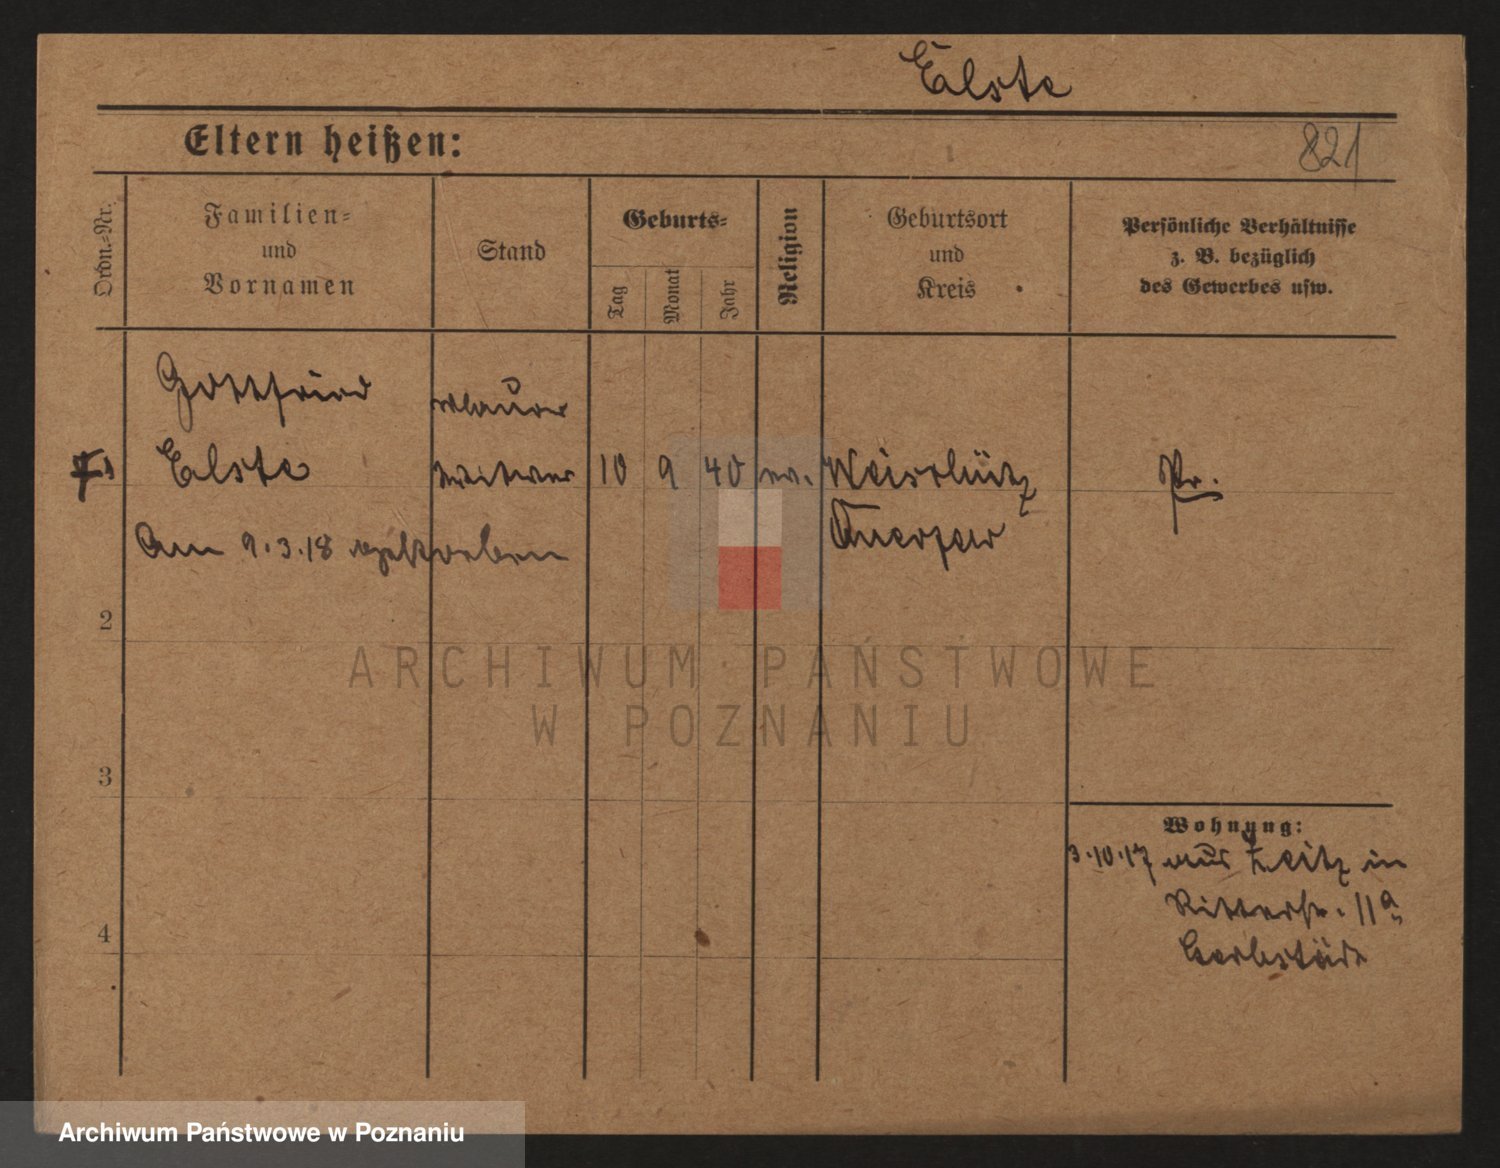 Elste
Eltern heißen:
821
Ordn.=Nr.
Familien=
und
Vornamen
Stand
Geburts=
Tag
Monat
Jahr
Religion
Geburtsort
und
Kreis
Persönliche Verhältnisse
z. B. bezüglich
des Gewerbes usw.
Gottfried
Maurer
Elste
10 9 40 ev.
Pr.
Am 9.3.18
2
3
4
Wohnung:
3.10.17 aus Zeitz in
Ritterstr. 11a
ARCHIWUM PAŃSTWOWE
W POZNANIU
Archiwum Państwowe w Poznaniu